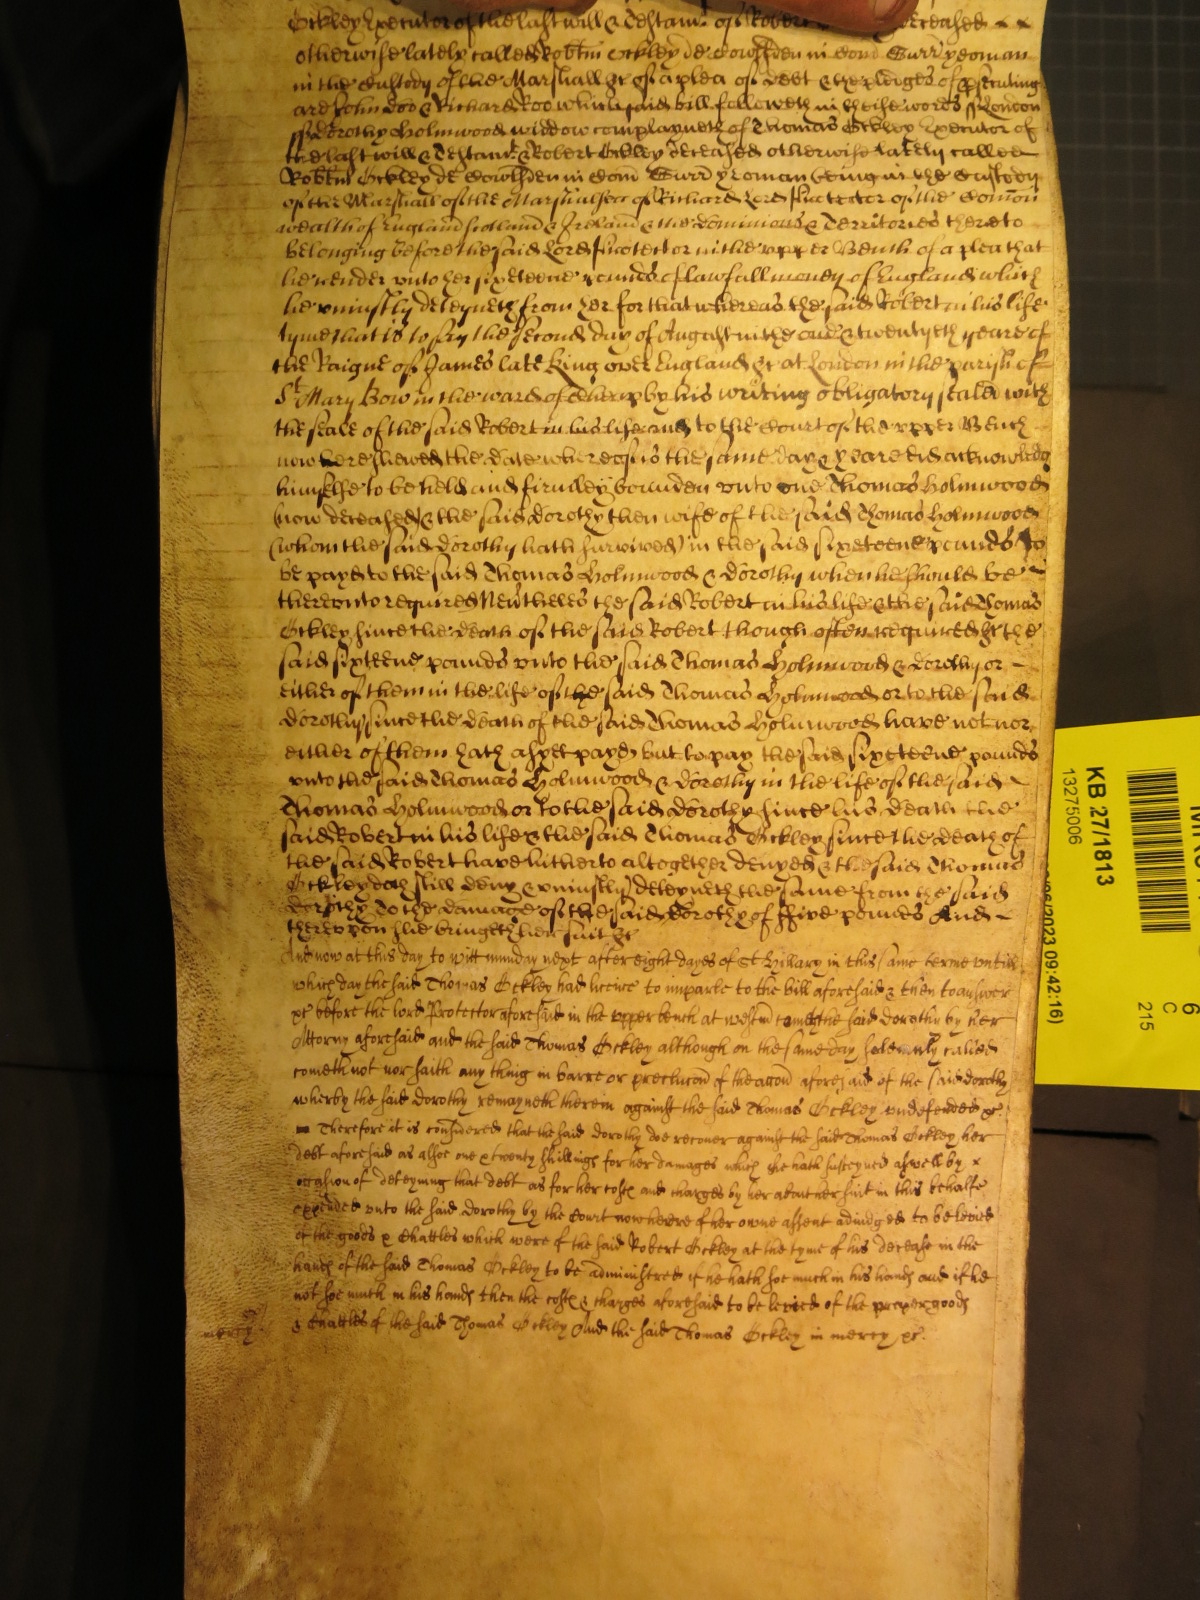 Ockley Executor of the last will & Testamt of Robert deceased
otherwise lately called Robtm Ockley de Cowlden in Com Surr yeoman
in the Custody of the Marshall &c of a plea of Debt & the pledges of psecuting
are John Doo & Richard Roo which said bill followeth in theise words London
ss Dorothy Holmwood widdow complayneth of Thomas Ockley Executor of
the last will & Testamt Robert Ockley deceased otherwise lately called
Robtm Ockley de Cowlden in Com Surr yeoman being in the Custody
of the Marshall of the Marshalsea of Richard Lord Protector of the Comon
wealth of England Scotland & Ireland & the dominions & Territories thereto
belonging before the said Lord Protector in the upper Bench of a plea that
he render unto her sixteene pounds of lawfull money of England which
he uniustly deteyneth from her for that whereas the said Robert in his life
tyme that is to say the second day of August in the one & twentyeth yeare of
the Raigne of James late King over England &c at London in the parish of
St Mary Bow in the ward of Cheap by his writing obligatory seald with
the seale of the said Robert in his life and to the Court of the upper Bench
now here shewed the date whereof is the same day & yeare did acknowledg
himselfe to be held and firmley bounden unto one Thomas Holmwood
(now deceased) & the said Dorothy then wife of the said Thomas Holmwood
(whom the said Dorothy hath survived) in the said sixteene pounds to
be payd to the said Thomas Holmwood & Dorothy when he should be
thereunto required Neutheles the said Robert in his life & the said Thomas
Ockley since the death of the said Robert though often required &c the
said sixteene pounds unto the said Thomas Holmwood & Dorothy or
either of them in the life of the said Thomas Holmwood or to the said
Dorothy since the death of the said Thomas Holmwood have not nor
either of them hath as yet payd but to pay the said sixteene pounds
unto the said Thomas Holmwood & Dorothy in the life of the said
Thomas Holmwood or to the said Dorothy since his death the
said Robert in his life & the said Thomas Ockley since the death of
the said Robert have hitherto altogether denyed & the said Thomas
Ockley doth still deny & uniustly deteyneth the same from the said
Dorothy To the damage of the said Dorothy of ffive pounds And
thereupon shee bringeth her suit &c
And now at this day to witt munday next after eight dayes of St Hillary in this same terme untill
which day the said Thomas Ockley had licence to imparle to the bill aforesaid & then to answer
&c before the lord Protector aforesaid in the upper bench at Westm cometh the said Dorothy by her
Attorny aforesaid and the said Thomas Ockley although on the same day solemnly called
cometh not nor saith any thing in barre or preclucon of the accon aforesaid of the said Dorothy
whereby the said Dorothy remayneth therein against the said Thomas Ockley undefended &c
Therefore it is considered that the said Dorothy doe recouer against the said Thomas Ockley her
debt aforesaid as alsoe one & twenty shillings for her damages which she hath susteyned aswell by
occasion of deteyning that debt as for her costs and charges by her about her suit in this behalfe
expended unto the said Dorothy by the Court now heere of her owne assent adiudged to be levied
of the goods & Chattles which were of the said Robert Ockley at the tyme of his decease in the
hands of the said Thomas Ockley to be administred if he hath soe much in his hands and if he
not soe much in his hands then the costs & charges aforesaid to be levied of the proper goods
& Chattles of the said Thomas Ockley And the said Thomas Ockley in mercy &c.
mercy
KB 27/1813
13275006
2023 09:42:16)
6
C
215